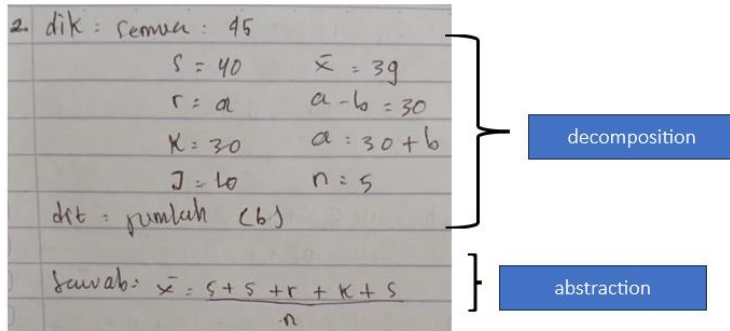 2. dik : semua : 45
s = 40 x̄ = 39
r = a a - b = 30
K = 30 a = 30 + b
J = 10 n = 5
dit = jumlah (b)
Jawab: x̄ = s + s + r + k + s
n
decomposition
abstraction